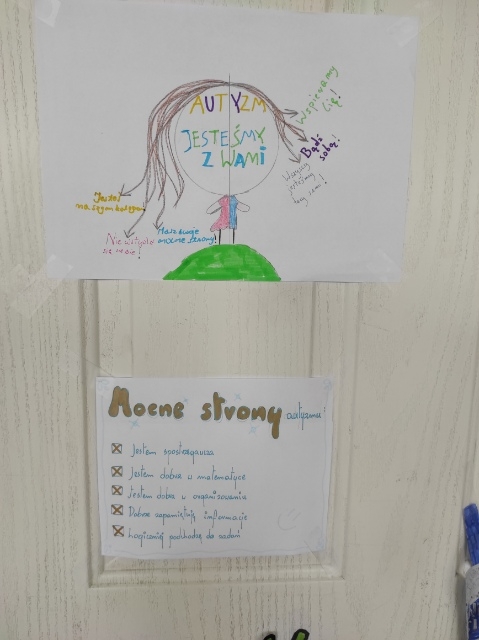 AUTYZM
JESTEŚMY
Z WAMI
Wspieramy
Cię!
Bądź
sobą!
Wszyscy
jesteśmy
tacy sami!
Jesteś
naszym kolegą!
Nie wstydź
się siebie!
Masz swoje
mocne strony!
Mocne strony autyzmu!
Jestem spostrzegawcza
Jestem dobra w matematyce
Jestem dobra w organizowaniu
Dobrze zapamiętuję informacje
Logiczniej podchodzę do zadań